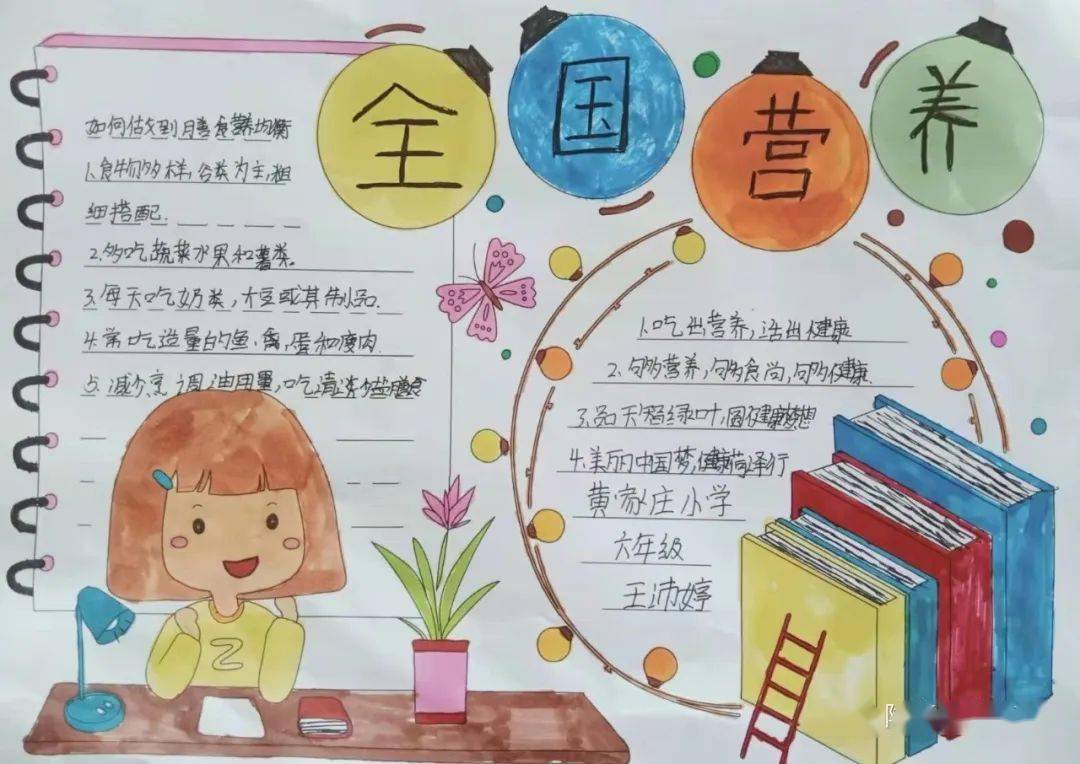 全国营养
如何做到膳食营养均衡
1.食物多样，谷类为主，粗
细搭配.
2.多吃蔬菜水果和薯类.
3.每天吃奶类，大豆或其制品.
4.常吃适量的鱼、禽，蛋和瘦肉.
5.减少烹调油用量，吃清淡少盐膳食
1.吃出营养，活出健康
2.够营养，够食尚，够健康.
3.品天赐绿叶，圆健康梦想
4.美丽中国梦，健康菏泽行
黄家庄小学
六年级
王沛婷
Z